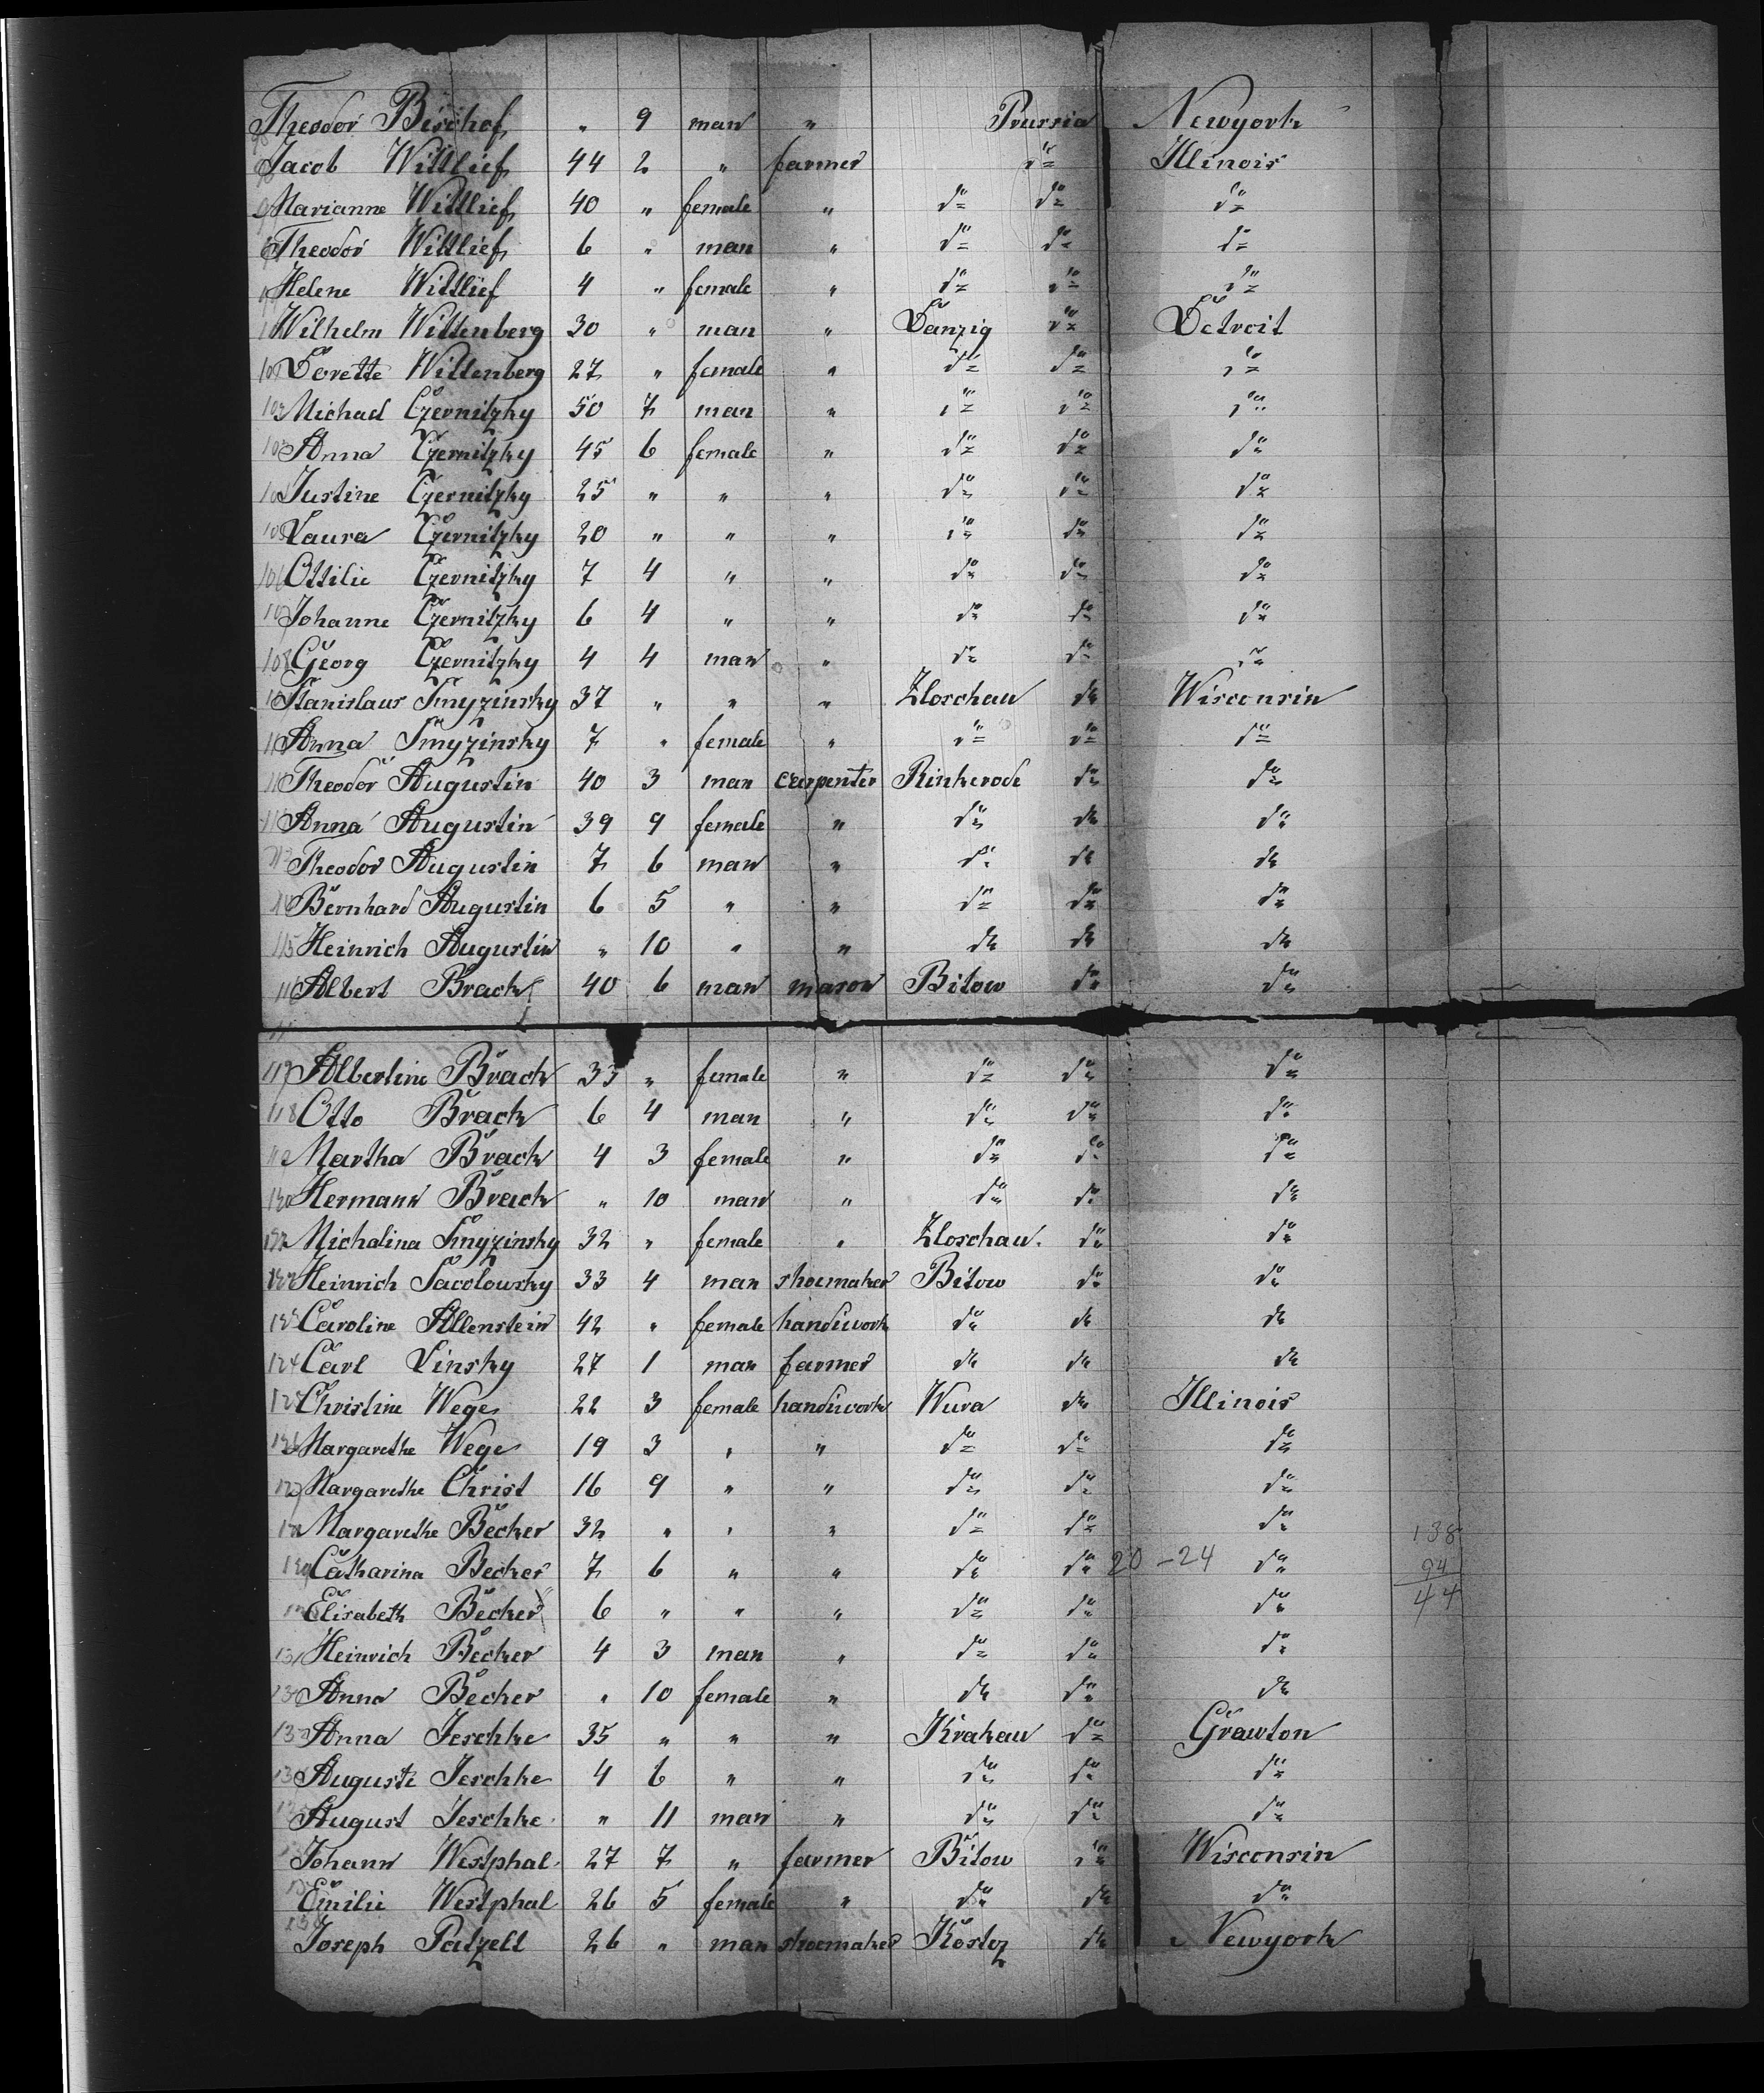 Theodor Bischof " 9 man " Prussia Newyork
Jacob Wittlief 44 2 " farmer do Illinois
Marianne Wittlief 40 " female " do do do
Theodor Wittlief 6 " man " do do do
Helene Wittlief 4 " female " do do do
Wilhelm Wittenberg 30 " man " Danzig do Detroit
101 Dorette Wittenberg 27 " female " do do do
102 Michael Czernitzky 50 7 man " do do do
103 Anna Czernitzky 45 6 female " do do do
104 Justine Czernitzky 25 " " " do do do
105 Laura Czernitzky 20 " " " do do do
106 Ottilie Czernitzky 7 4 " " do do do
107 Johanne Czernitzky 6 4 " " do do do
108 Georg Czernitzky 4 4 man " do do do
109 Stanislaus Smyzinsky 37 " " " Zloschau do Wisconsin
110 Anna Smyzinsky 7 " female " do do do
111 Theodor Augustin 40 3 man carpenter Rinkerode do do
112 Anna Augustin 39 9 female " do do do
113 Theodor Augustin 7 6 man " do do do
114 Bernhard Augustin 6 5 " " do do do
115 Heinrich Augustin " 10 " " do do do
116 Albert Brack 40 6 man mason Bitow do do
117 Albertine Brack 33 " female " do do do
118 Otto Brack 6 4 man " do do do
119 Martha Brack 4 3 female " do do do
120 Hermann Brack " 10 man " do do do
Michalina Smyzinsky 32 " female " Zloschau do do
122 Heinrich Sacolowsky 33 4 man shoemaker Bitow do do
123 Caroline Allenstein 42 " female handiwork do do do
124 Carl Linsky 27 1 man farmer do do do
125 Christine Wege 22 3 female handiwork Wura do Illinois
126 Margarethe Wege 19 3 " " do do do
127 Margarethe Christ 16 9 " " do do do
128 Margarethe Becker 32 " " " do do do 138
129 Catharina Becker 7 6 " " do do 20 - 24 do 94
130 Elisabeth Becker 6 " " " do do do 44
131 Heinrich Becker 4 3 man " do do do
Anna Becker " 10 female " do do do
133 Anna Jeschke 35 " " " Krakau do Grawton
134 Auguste Jeschke 4 6 " " do do do
August Jeschke " 11 man " do do do
Johann Westphal 27 7 " farmer Bitow do Wisconsin
137 Emilie Westphal 26 5 female " do do do
138 Joseph Patzell 26 " man shoemaker Kostoz do Newyork